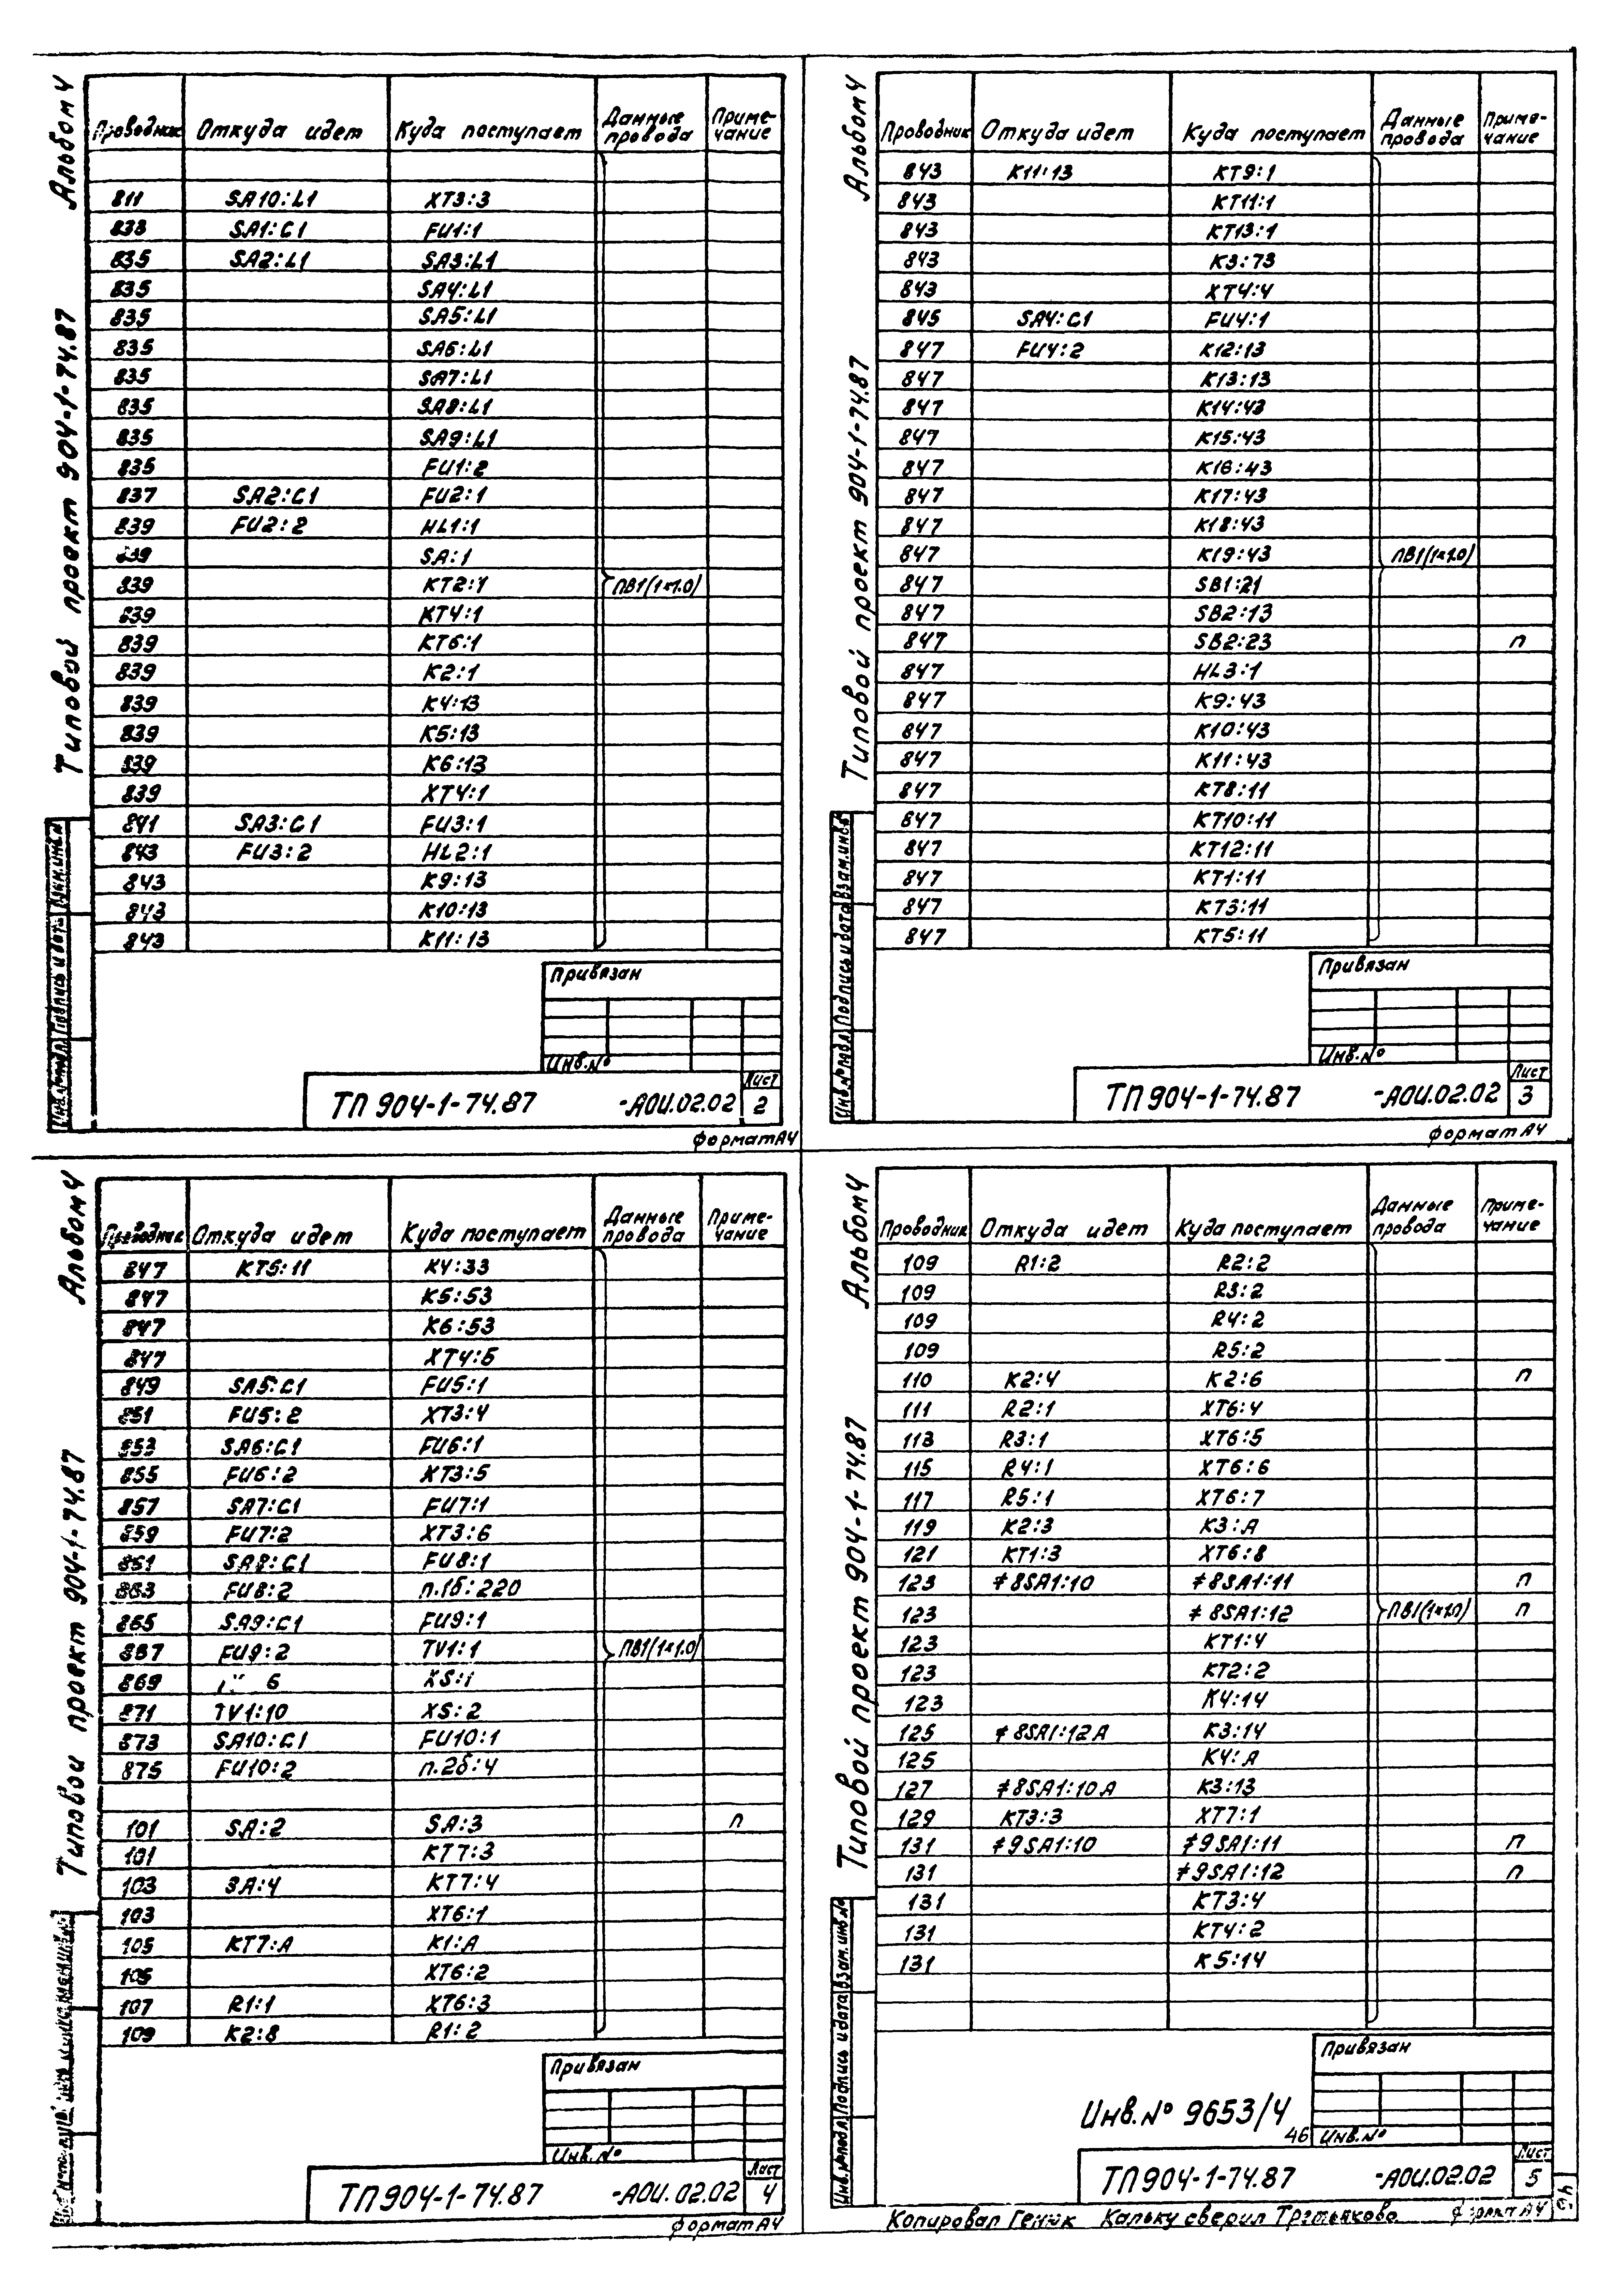 Альбом 4
Типовой проект 904-1-74.87
Проводник Откуда идет Куда поступает Данные провода Примечание
811 SA10:L1 XT3:3
833 SA1:C1 FU1:1
835 SA2:L1 SA3:L1
835 SA4:L1
835 SA5:L1
835 SA6:L1
835 SA7:L1
835 SA8:L1
835 SA9:L1
835 FU1:2
837 SA2:C1 FU2:1
839 FU2:2 HL1:1
839 SA:1
839 KT2:1 ПВ1(1×1.0)
839 KT4:1
839 KT6:1
839 K2:1
839 K4:13
839 K5:13
839 K6:13
839 XT4:1
841 SA3:C1 FU3:1
843 FU3:2 HL2:1
843 K9:13
843 K10:13
843 K11:13
Привязан
Инв.№
ТП 904-1-74.87 -АОИ.02.02 Лист 2
формат А4
Альбом 4
Типовой проект 904-1-74.87
Взам.инв.№
Подпись и дата
Инв.№ подл.
Проводник Откуда идет Куда поступает Данные провода Примечание
843 K11:13 KT9:1
843 KT11:1
843 KT13:1
843 K3:73
843 XT4:4
845 SA4:C1 FU4:1
847 FU4:2 K12:13
847 K13:13
847 K14:43
847 K15:43
847 K16:43
847 K17:43
847 K18:43
847 K19:43 ПВ1(1×1.0)
847 SB1:21
847 SB2:13
847 SB2:23 п
847 HL3:1
847 K9:43
847 K10:43
847 K11:43
847 KT8:11
847 KT10:11
847 KT12:11
847 KT1:11
847 KT3:11
847 KT5:11
Привязан
Инв.№
ТП 904-1-74.87 -АОИ.02.02 Лист 3
формат А4
Альбом 4
Типовой проект 904-1-74.87
Проводник Откуда идет Куда поступает Данные провода Примечание
847 KT5:11 K4:33
847 K5:53
847 K6:53
847 XT4:5
849 SA5:C1 FU5:1
851 FU5:2 XT3:4
853 SA6:C1 FU6:1
855 FU6:2 XT3:5
857 SA7:C1 FU7:1
859 FU7:2 XT3:6
SA8:C1 FU8:1
863 FU8:2 п.1б:220
865 SA9:C1 FU9:1
867 FU9:2 TV1:1 ПВ1(1×1.0)
869 6 XS:1
871 TV1:10 XS:2
873 SA10:C1 FU10:1
875 FU10:2 п.2б:4
101 SA:2 SA:3 п
101 KT7:3
103 SA:4 KT7:4
103 XT6:1
105 KT7:A K1:A
105 XT6:2
107 R1:1 XT6:3
109 K2:8 R1:2
Привязан
Инв.№
ТП 904-1-74.87 -АОИ.02.02 Лист 4
формат А4
Альбом 4
Типовой проект 904-1-74.87
Взам.инв.№
Подпись и дата
Инв.№ подл.
Проводник Откуда идет Куда поступает Данные провода Примечание
109 R1:2 R2:2
109 R3:2
109 R4:2
109 R5:2
110 K2:4 K2:6 п
111 R2:1 XT6:4
113 R3:1 XT6:5
115 R4:1 XT6:6
117 R5:1 XT6:7
119 K2:3 K3:A
121 KT1:3 XT6:8
123 ≠8SA1:10 ≠8SA1:11 п
123 ≠8SA1:12 ПВ1(1×1.0) п
123 KT1:4
123 KT2:2
123 K4:14
125 ≠8SA1:12A K3:14
125 K4:A
127 ≠8SA1:10A K3:13
129 KT3:3 XT7:1
131 ≠9SA1:10 ≠9SA1:11 п
131 ≠9SA1:12 п
131 KT3:4
131 KT4:2
131 K5:14
Привязан
Инв.№ 9653/4
46 Инв.№
ТП 904-1-74.87 -АОИ.02.02 Лист 5
Копировал Геник Кальку сверил Третьякова формат А4